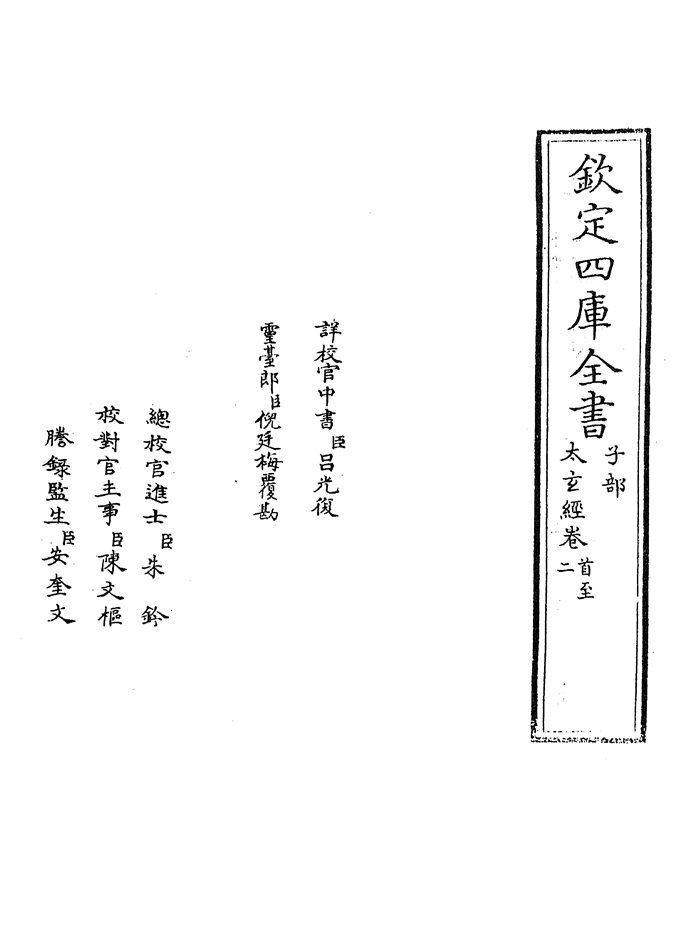 欽定四庫全書
子部
太玄經卷首至二
詳校官中書臣呂光復
靈臺郎臣倪廷梅覆勘
總校官進士臣朱鈐
校對官主事臣陳文樞
謄錄監生臣安奎文